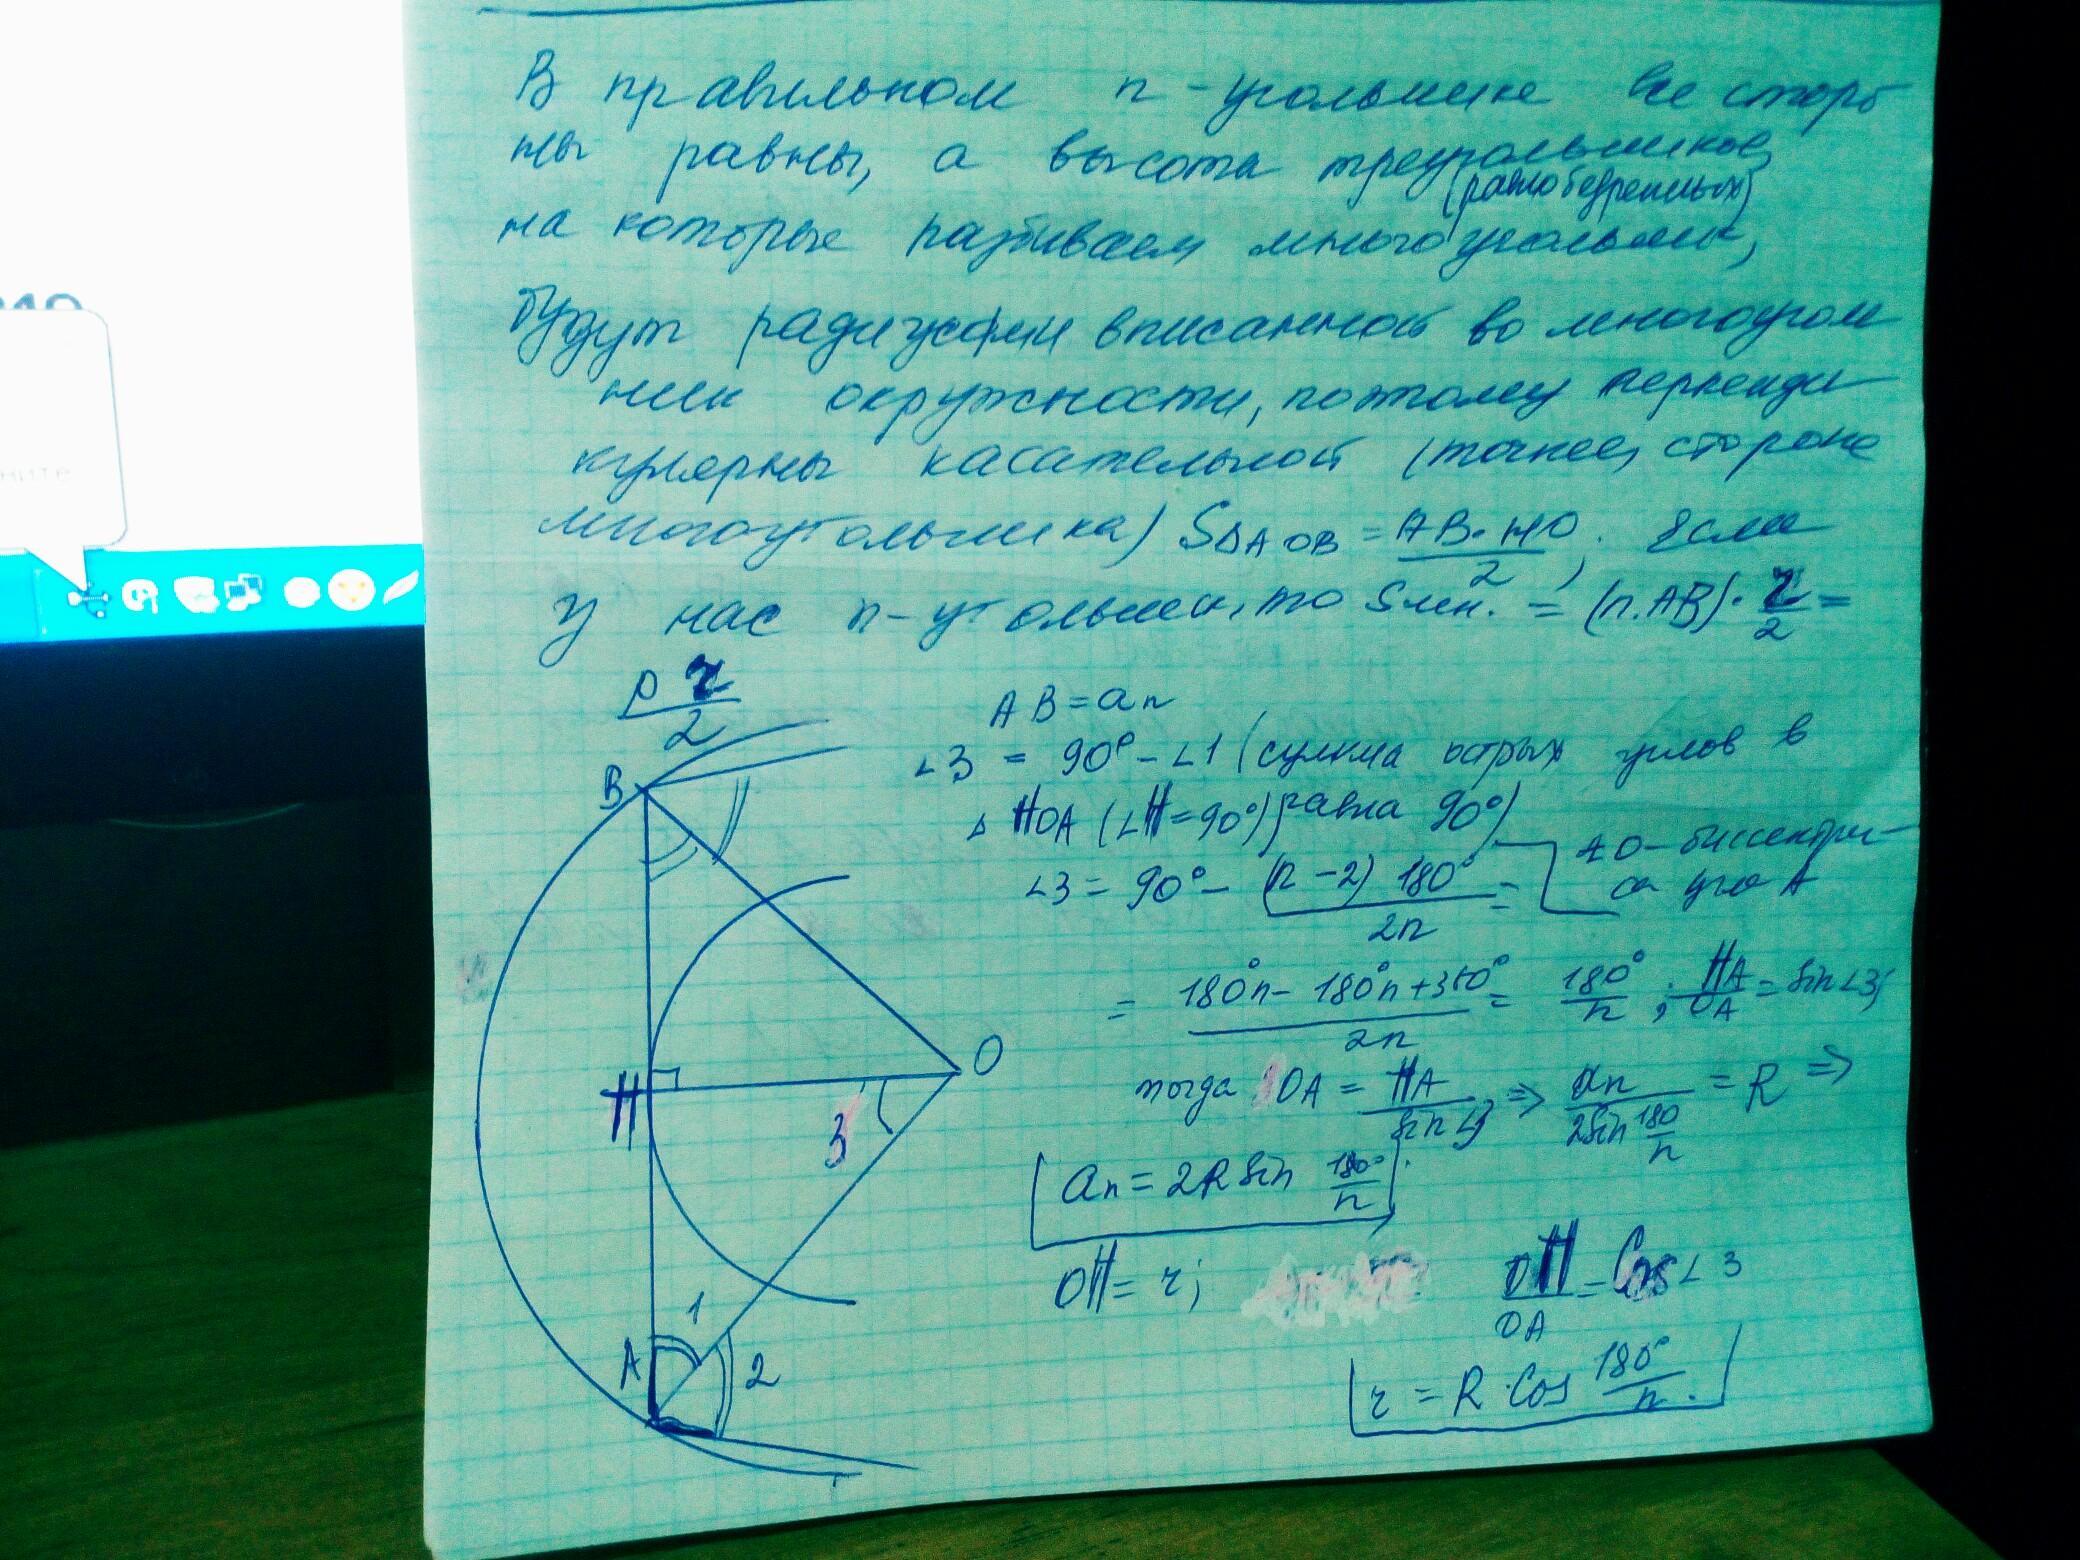 В правильном n-угольнике все сторо
ны равны, а высота треугольников,
(равнобедренных)
на которые разбиваем многоугольник,
будут радиусами вписанной во многоуголь
ник окружности, поэтому перпенди
кулярны касательной (точнее, стороне
многоугольника) S△AOB = AB·HO/2, Если
У нас n-угольник, то Sмн. = (n·AB)·r/2 =
P r/2
AB = an
∠3 = 90° - ∠1 (сумма острых углов в
△ HOA (∠H=90°) равна 90°)
AO-биссектри-
са угла A
∠3 = 90° - (n-2)180°/2n =
= 180°n - 180°n + 360°/2n = 180°/n ; HA/OA = sin∠3;
тогда OA = HA/sin∠3 => an/2sin 180/n = R =>
an = 2R sin 180°/n.
OH = r;
OH/OA = Cos∠3
r = R·Cos 180°/n.
B
H
O
3
A
1
2
ните